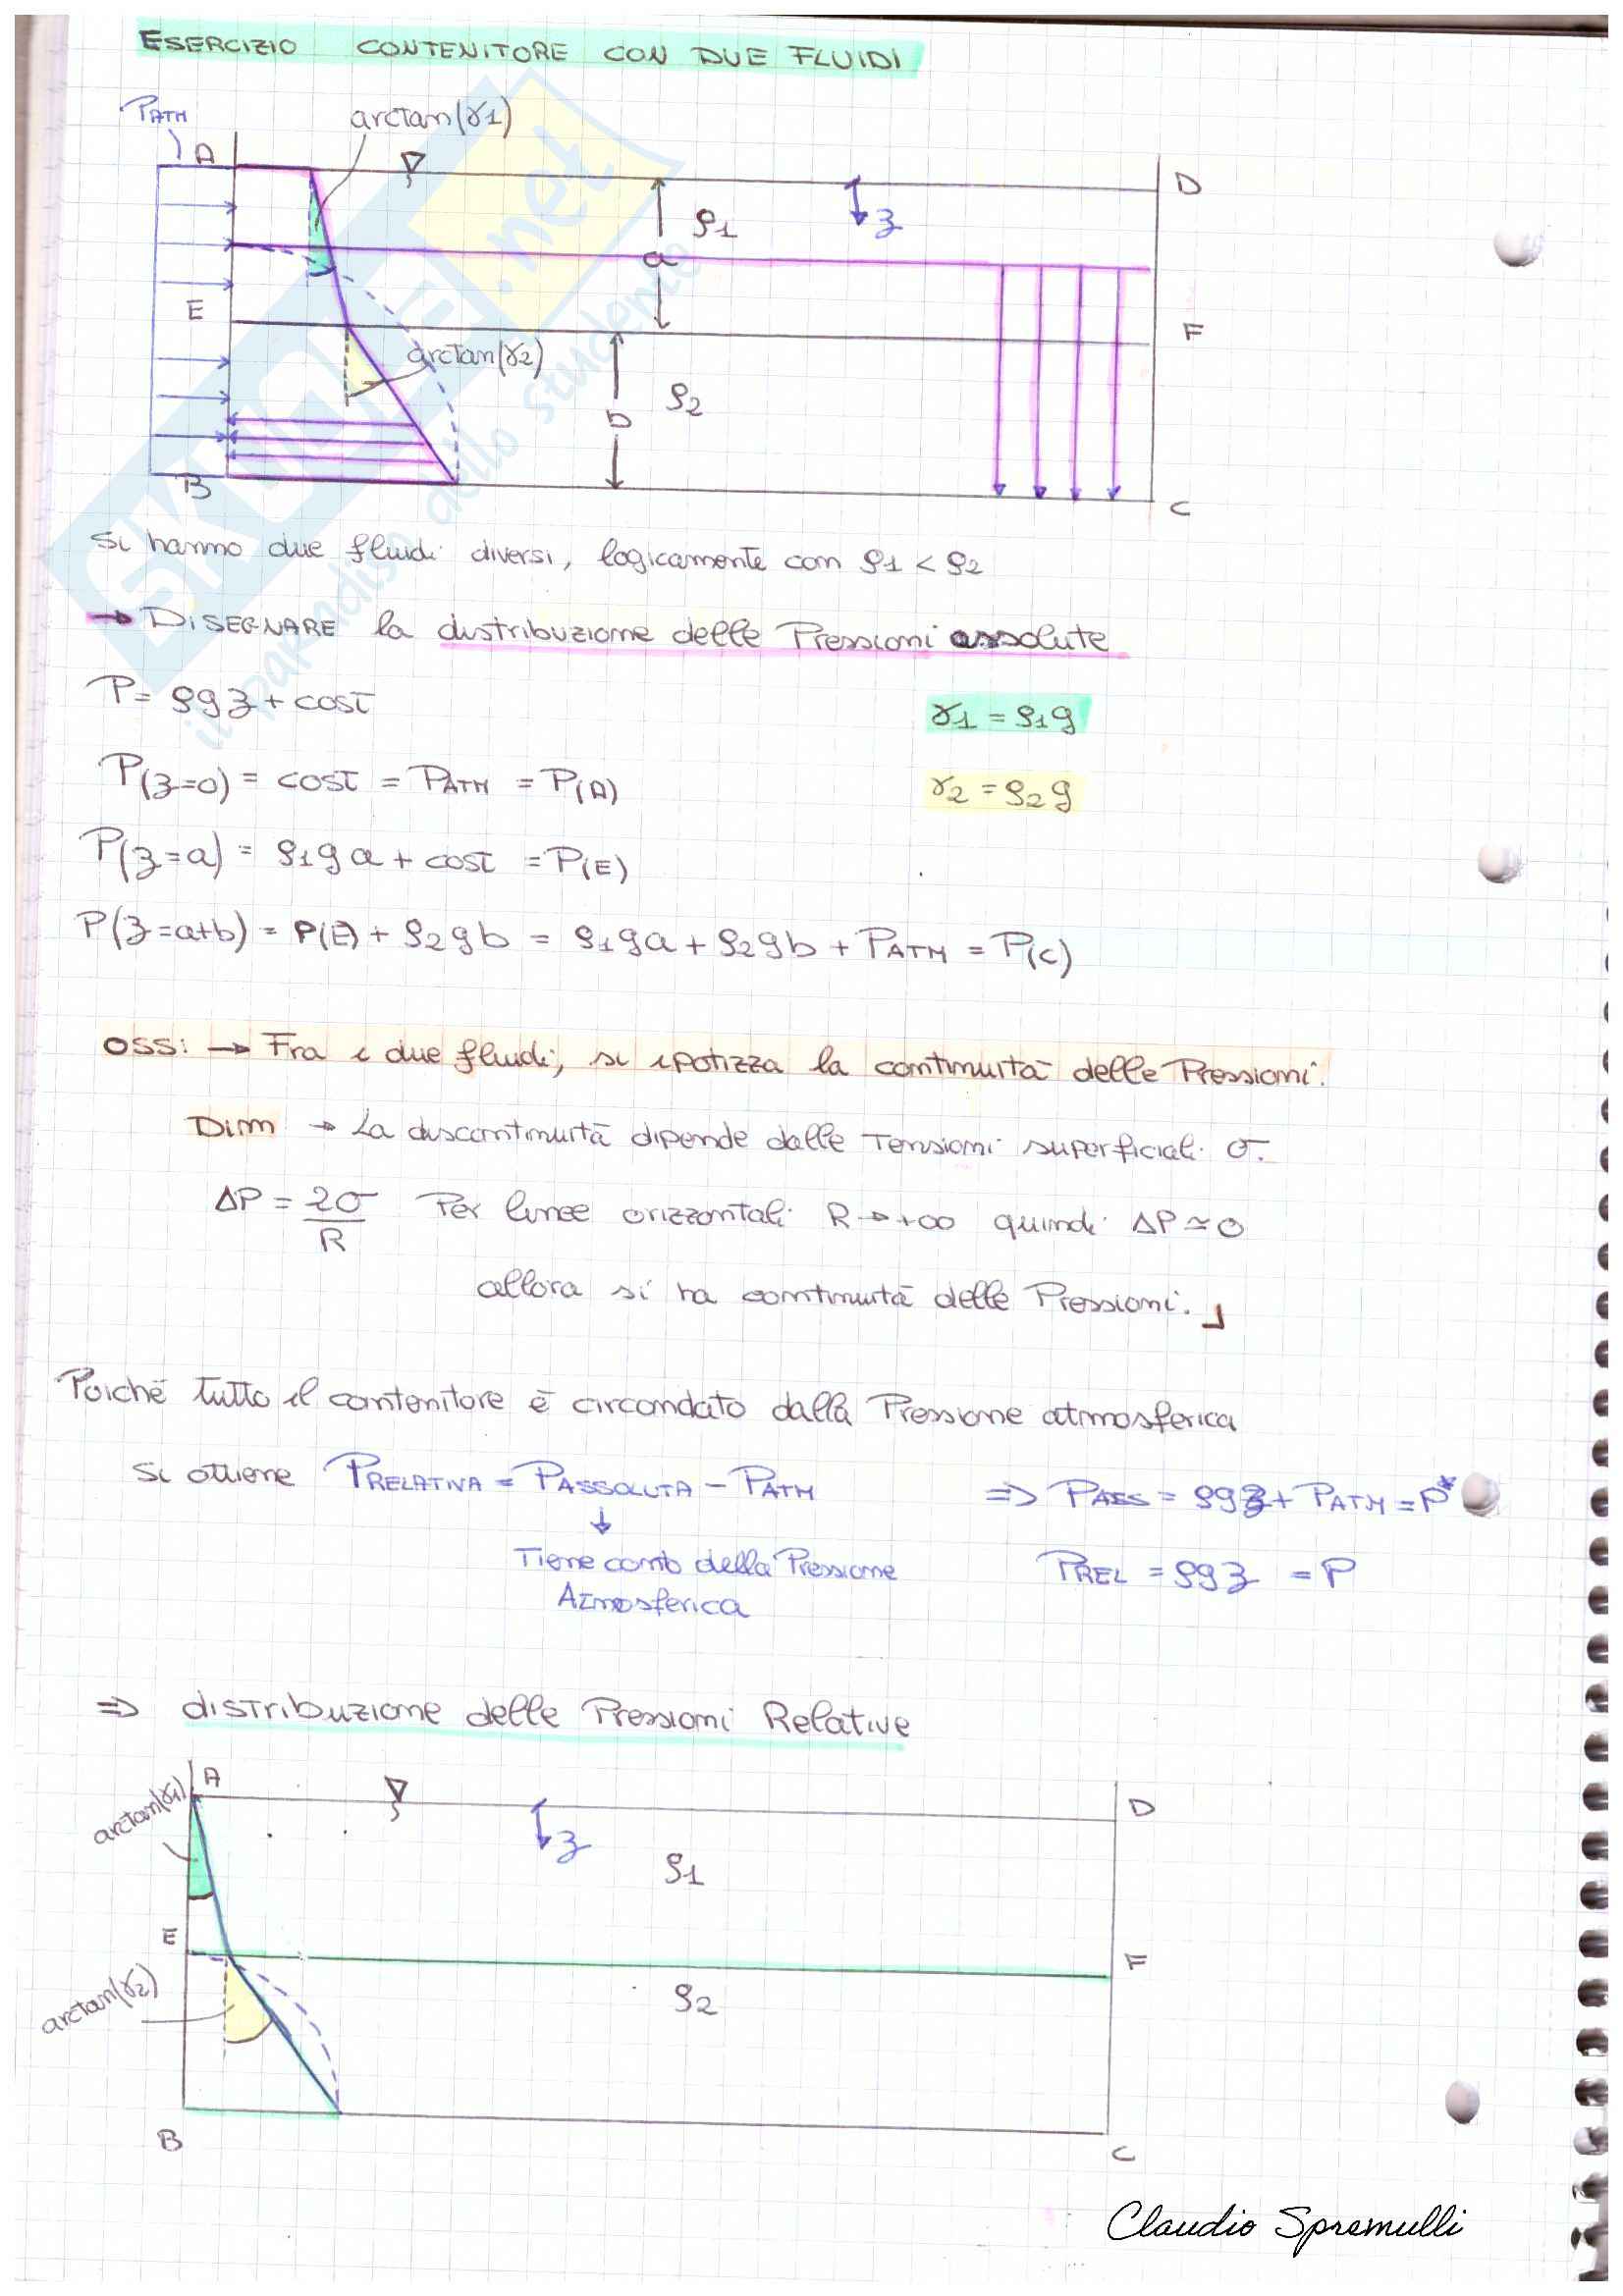 ESERCIZIO CONTENITORE CON DUE FLUIDI
PATM
arctan(γ1)
A
D
ρ1
z
a
E
F
arctan(γ2)
ρ2
b
B
C
SKUOLA.net
il paradiso dello studente
Si hanno due fluidi diversi, logicamente con ρ1 < ρ2
→ DISEGNARE la distribuzione delle Pressioni assolute
P = ρgz + cost
γ1 = ρ1g
P(z=0) = cost = PATM = P(A)
γ2 = ρ2g
P(z=a) = ρ1ga + cost = P(E)
P(z=a+b) = P(E) + ρ2gb = ρ1ga + ρ2gb + PATM = P(C)
OSS: → Fra i due fluidi, si ipotizza la continuità delle Pressioni.
Dim → La discontinuità dipende dalle Tensioni superficiali σ.
ΔP = 2σ/R Per linee orizzontali R → +∞ quindi ΔP ≃ 0
allora si ha continuità delle Pressioni.
Poiché tutto il contenitore è circondato dalla Pressione atmosferica
si ottiene PRELATIVA = PASSOLUTA - PATM ⇒ PASS = ρgz + PATM = P*
↓
Tiene conto della Pressione
Atmosferica
PREL = ρgz = P
⇒ distribuzione delle Pressioni Relative
A
arctan(γ1)
D
z
ρ1
E
F
arctan(γ2)
ρ2
B
C
Claudio Spremulli